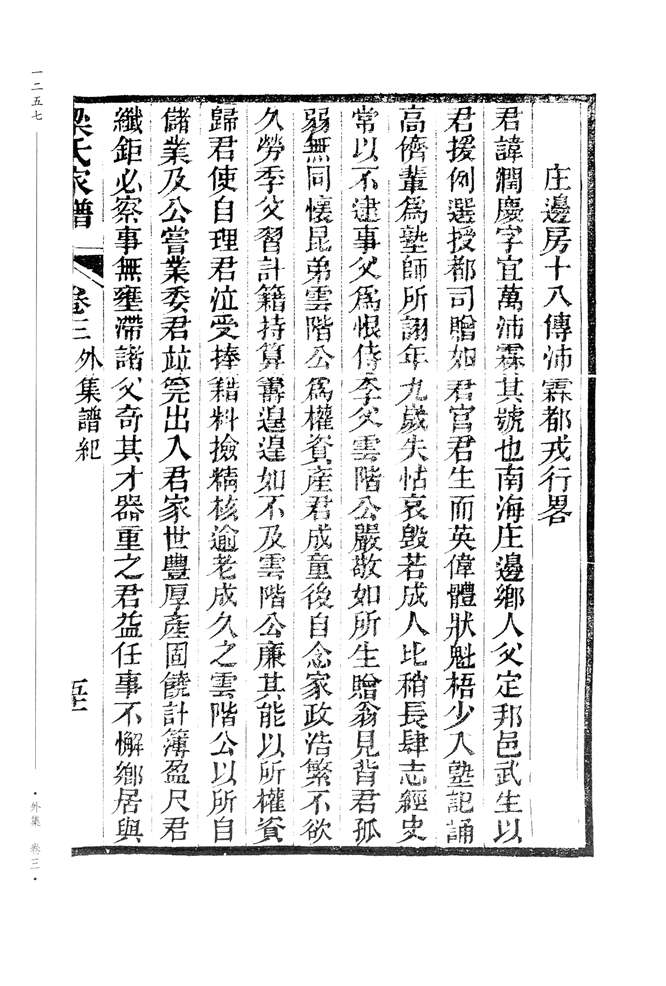 庄邊房十八傳沛霖都戎行畧
君諱潤慶字宜萬沛霖其號也南海庄邊鄉人父定邦邑武生以
君援例選授都司贈如君官君生而英偉體狀魁梧少入塾記誦
高儕輩爲塾師所詡年九歲失怙哀毀若成人比稍長肆志經史
常以不逮事父爲恨侍季父雲階公嚴敬如所生贈翁見背君孤
弱無同懷昆弟雲階公爲權資產君成童後自念家政浩繁不欲
久勞季父習計籍持算籌遑遑如不及雲階公廉其能以所權資
歸君使自理君泣受捧籍料撿精核逾老成久之雲階公以所自
儲業及公嘗業委君竝筦出入君家世豐厚產固饒計簿盈尺君
纖鉅必察事無壅滯諸父奇其才器重之君益任事不懈鄉居與
梁氏家譜 卷三 外集譜紀 五十二
一二五七
·外集 卷三·